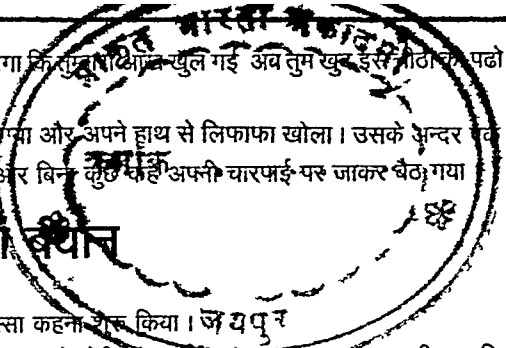 प्राकृत भारती अकादमी
गा कि तुम्हारी आंख खुल गई अब तुम खुद इस चीठी को पढो
और अपने हाथ से लिफाफा खोला । उसके अन्दर एक
क्रमांक
और बिना कुछ कहे अपनी चारपाई पर जाकर बैठ गया ।
बयान
त्सा कहना शुरू किया ।
जयपुर